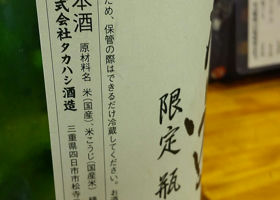 限定瓶
ため、保管の際はできるだけ冷蔵してください。お
原材料名 米(国産)、米こうじ(国産米)
本酒
式会社タカハシ酒造
三重県四日市市松寺